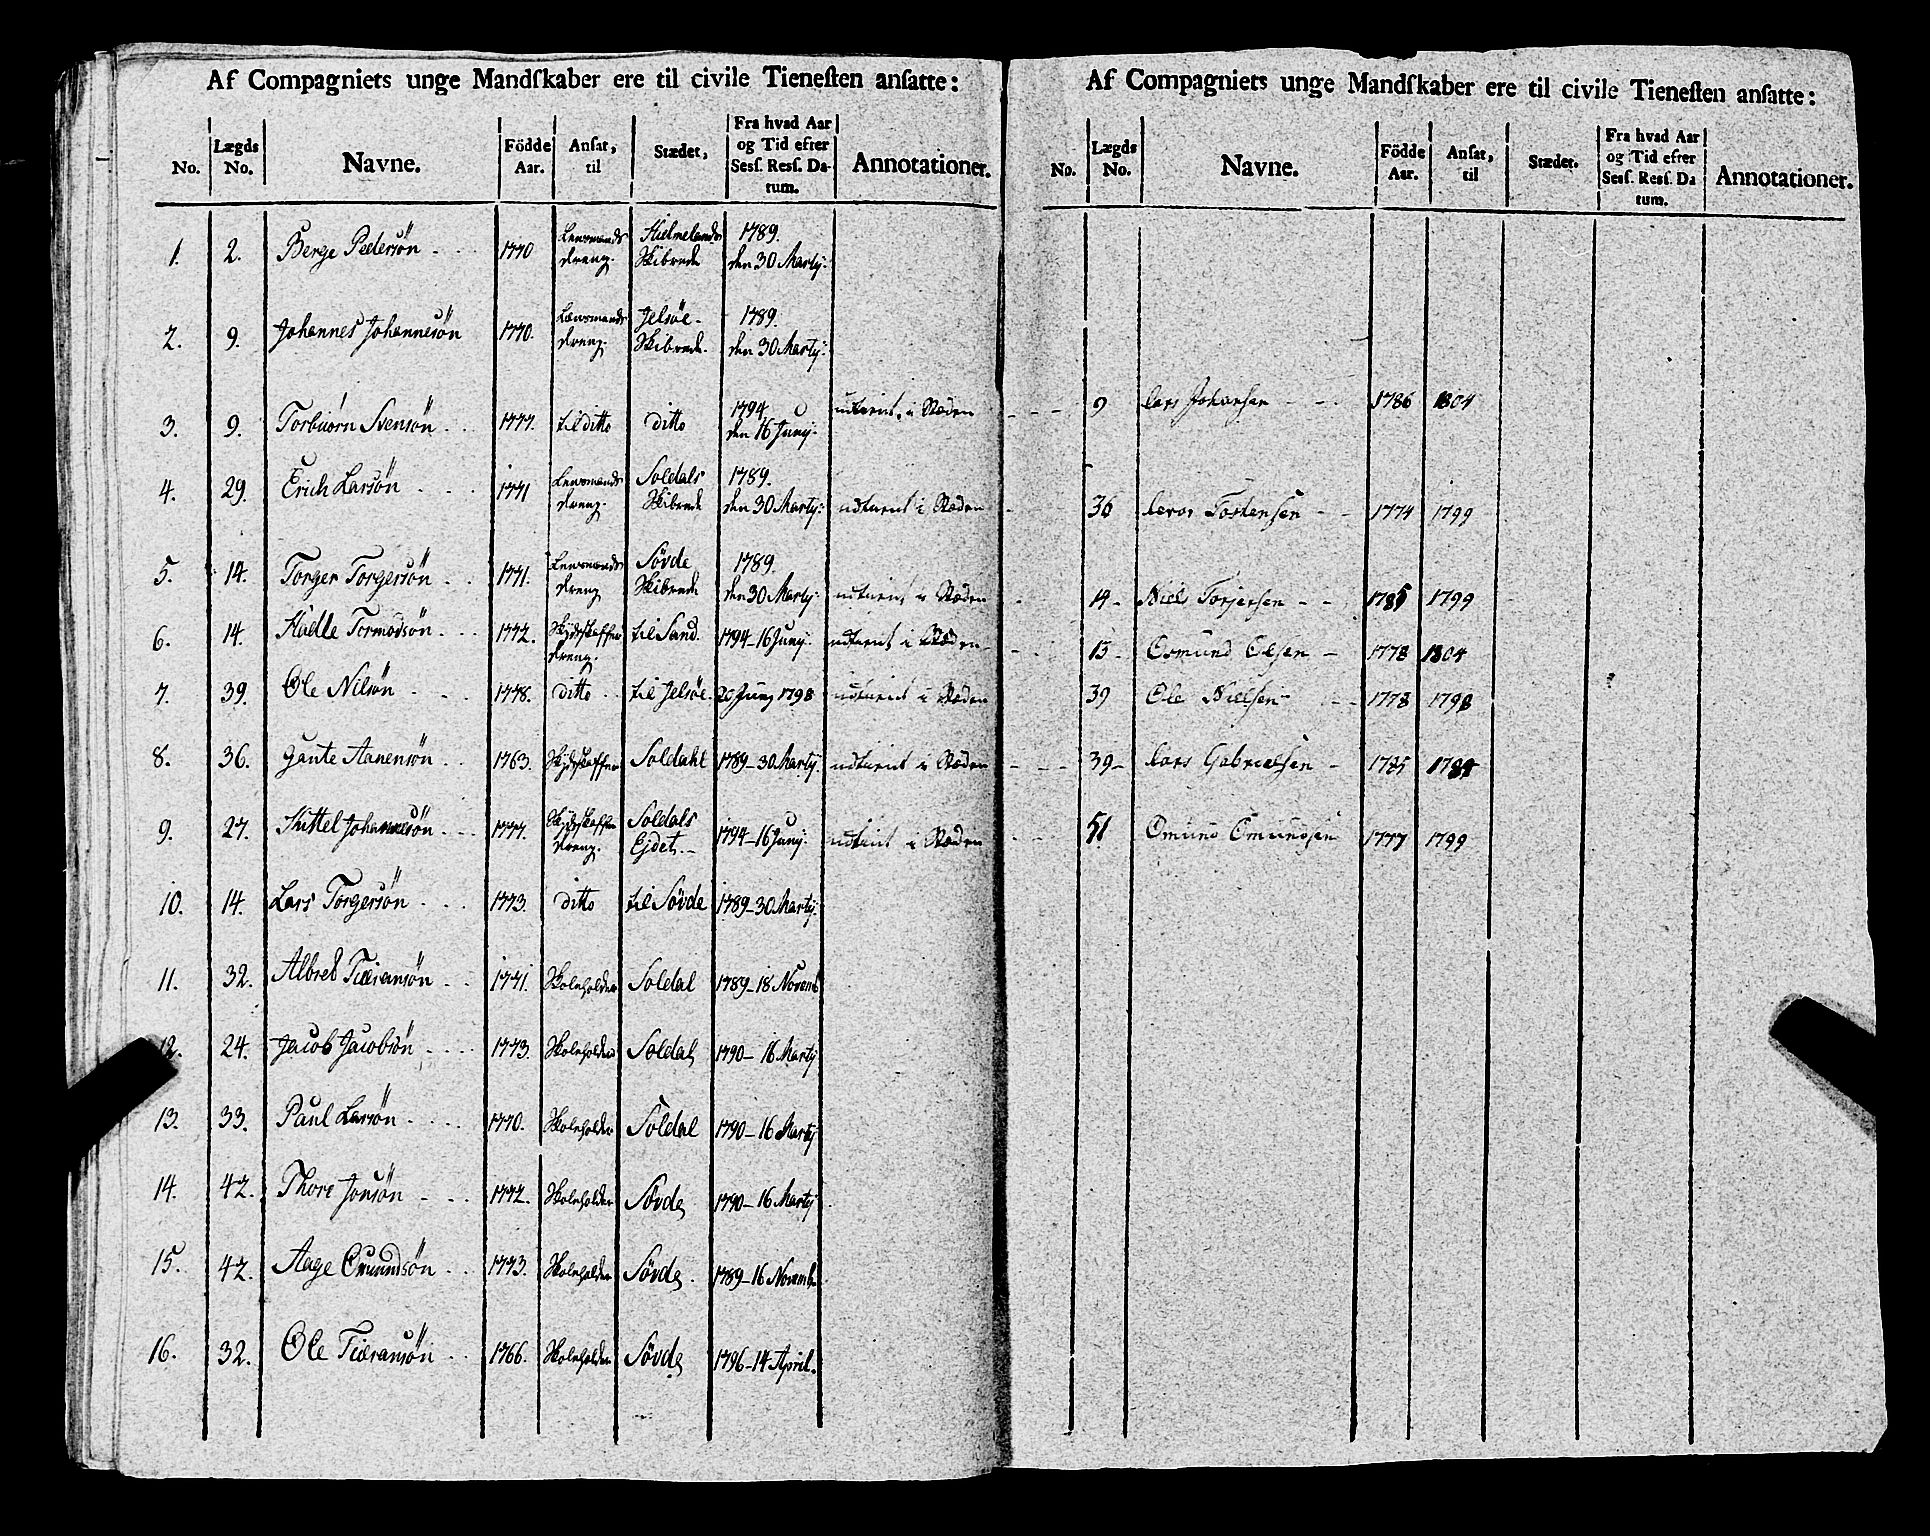 Af Compagniets unge Mandſkaber ere til civile Tieneſten anſatte:
No. Lægds No. Navne. Födde Aar. Anſat, til Stædet, Fra hvad Aar og Tid efter Sesſ. Resſ. Datum. Annotationer.
1. 2. Berge Pedersön 1770 Lensmands dreng. Hielmelands Skibrede 1789. den 30 Martÿ.
2. 9. Johannes Johannesön 1770. Lænsmands dreng. Jelsöe Skibrede. 1789. den 30 Martÿ:
3. 9. Torbiörn Svensön 1777. til ditto ditto 1794. den 16 Junÿ. udtient i Ræden
4. 29. Erich Larsön 1771 Lensmands dreng. Soldals Skibrede 1789. den 30 Martÿ: udtient i Ræden
5. 14. Torger Torgersön 1771. Lensmands dreng Sövde Skibrede 1789. den 30 Martÿ udtient i Ræden
6. 14. Tormodsön 1772. Skÿdskaffer dreng. til Sand. 1794-16 Junÿ. udtient i Ræden
7. 39. Ole Nilsön 1778. ditto til Jelsöe. 20 Junÿ 1798 udtient i Ræden
8. 36. Gaute Aanensön 1763. Skÿdskaffer Soldahl 1789-30 Martÿ. udtient i Ræden
9. 27. Kittel Johannesön 1777. Skÿdskaffer dreng. Soldals Ejdet. 1794-16 Junÿ. udtient i Ræden
10. 14. Lars Torgersön 1773. ditto til Sövde 1789-30 Martÿ.
11. 32. Albret Tiæransön 1771. Skoleholder Soldal 1789-18 Novemb
12. 24. Jacob Jacobsön 1773. Skoleholder Soldal 1790-16 Martÿ
13. 33. Paul Larsön 1770. Skoleholder Soldal 1790-16 Martÿ
14. 42. Thore Jonsön 1772. Skoleholder Sövde 1790-16 Martÿ
15. 42. Aage Omundsön 1773. Skoleholder Sövde. 1789-16 Novemb.
16. 32. Ole Tiæransön 1766. Skoleholder Sövde 1796-14 April.
Af Compagniets unge Mandſkaber ere til civile Tieneſten anſatte:
No. Lægds No. Navne. Födde Aar. Anſat, til Stædet. Fra hvad Aar og Tid efter Sesſ. Resſ. Datum. Annotationer.
9 Lars Johansen 1786 1804
36 Tostensen 1774 1799
14 Niels Torjersen 1785 1799
15 Osmund Olsen 1778 1804
39 Ole Nielsen 1778 1798
39 Lars Gabrielsen 1775 1784
51 Omund Omundsen 1777 1799